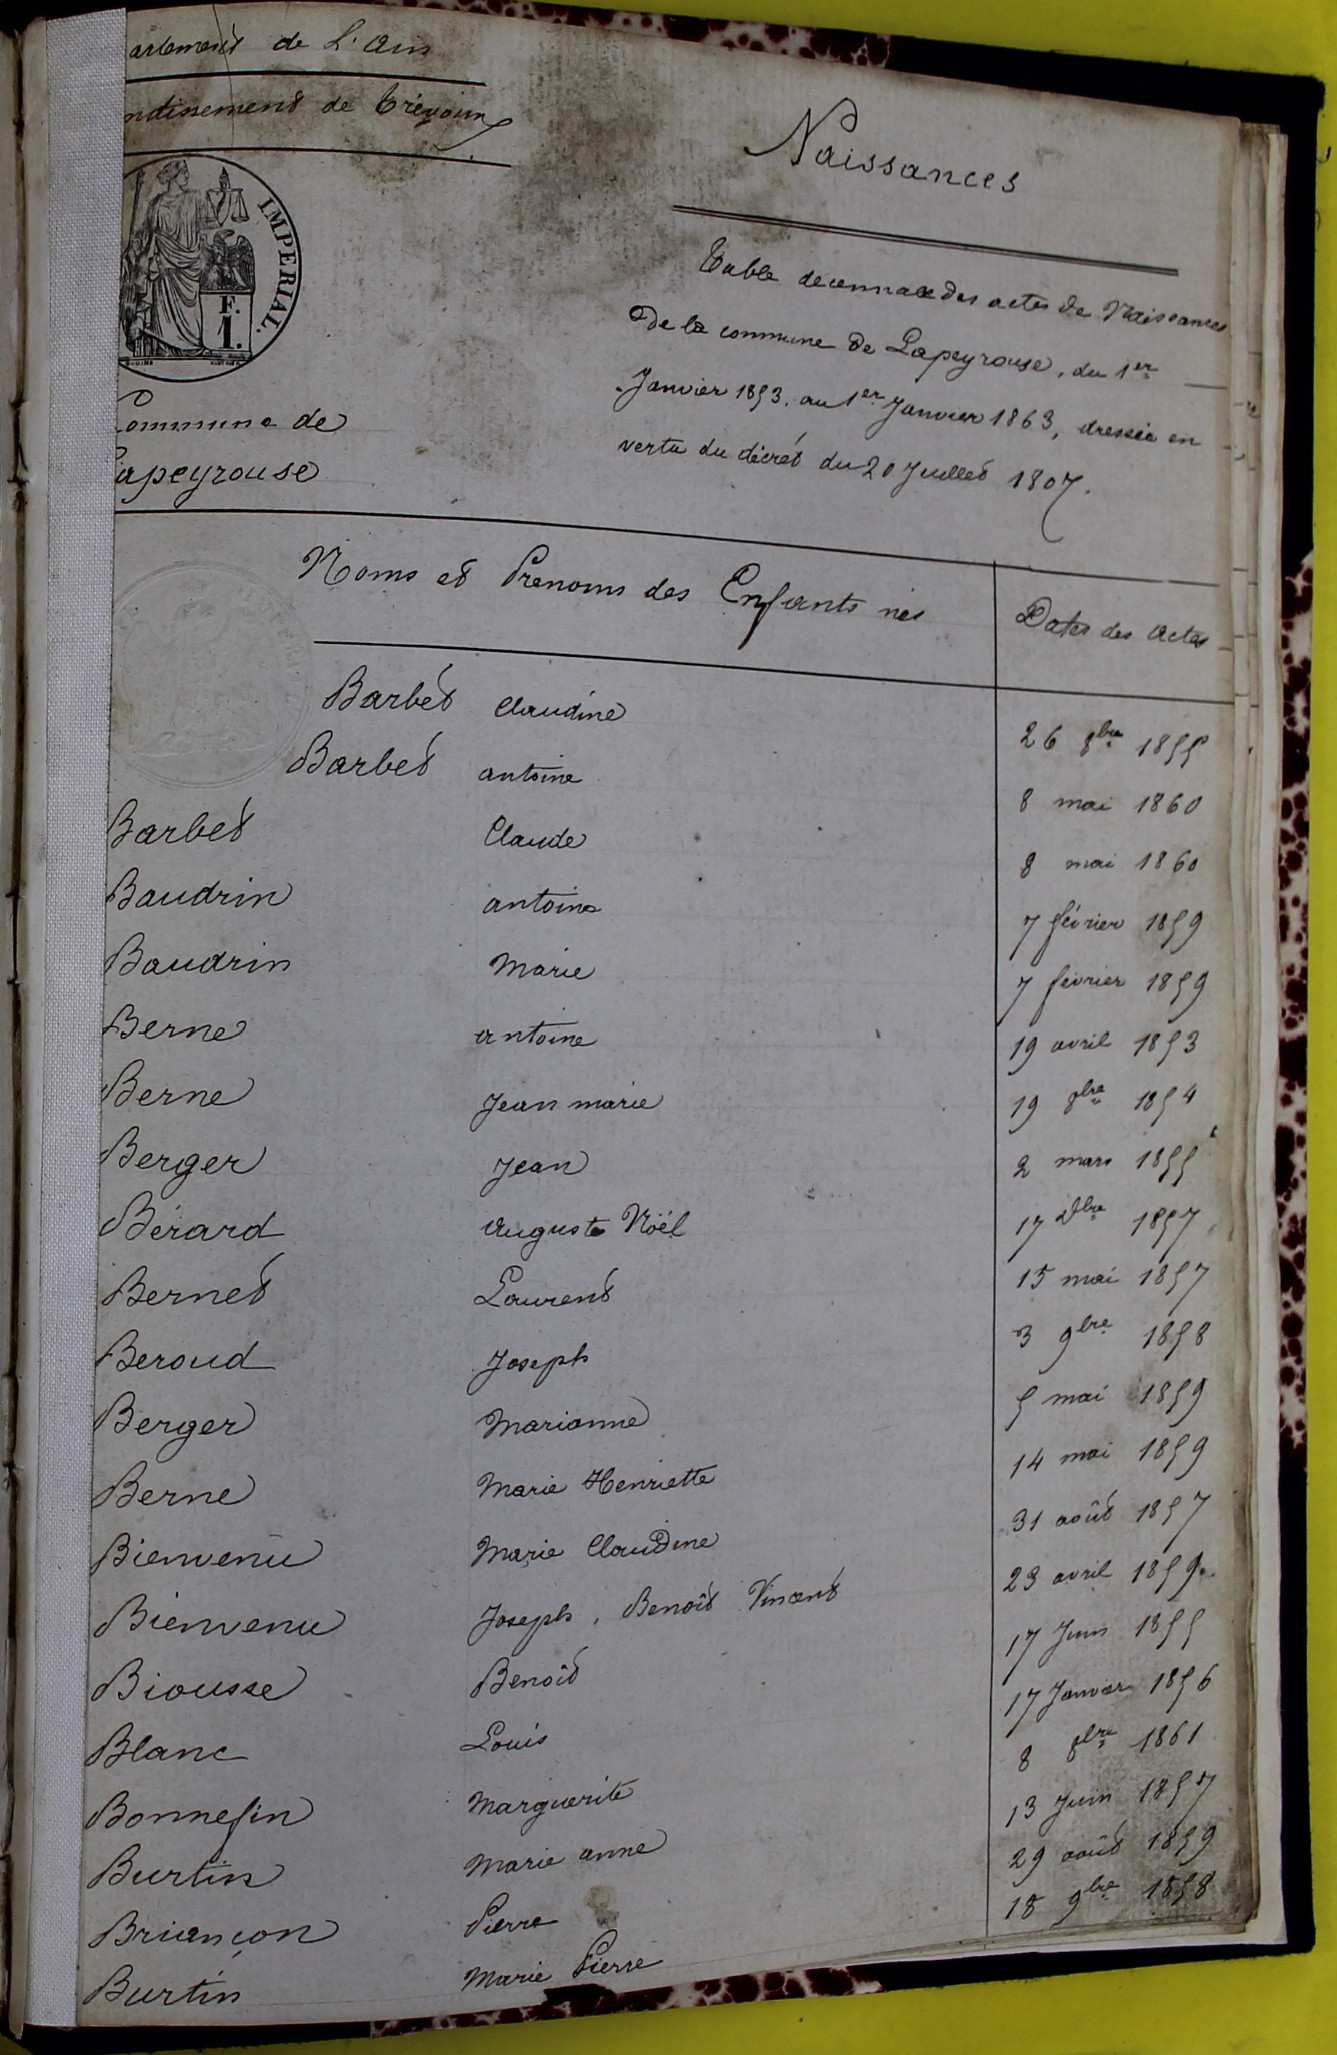 artement de L'Ain
ndissement de Trévoux
IMPERIAL.
F.
1.
Commune de
Lapeyrouse
Naissances
Table decennale des actes de Naissances
De la commune de Lapeyrouse, du 1er
Janvier 1853. au 1er Janvier 1863, dressée en
vertu du décret du 20 Juillet 1807.
Noms et Prenoms des Enfants nés Dates des Actes
Barbet Claudine 26 8bre 1855
Barbet antoine 8 mai 1860
Barbet Claude 8 mai 1860
Baudrin antoine 7 février 1859
Baudrin Marie 7 février 1859
Berne antoine 19 avril 1853
Berne Jean marie 19 8bre 1854
Berger Jean 2 mars 1855
Bérard auguste Noël 17 Xbre 1857
Bernet Laurent 15 mai 1857
Beroud Joseph 3 9bre 1858
Berger Marianne 5 mai 1859
Berne Marie Henriette 14 mai 1859
Bienvenu Marie Claudine 31 août 1857
Bienvenu Joseph, Benoît Vincent 23 avril 1859
Biousse Benoît 17 Juin 1855
Blanc Louis 17 Janvier 1856
Bonnefin Marguerite 8 8bre 1861
Burtin Marie anne 13 Juin 1857
Briançon Pierre 29 août 1859
Burtin Marie Pierre 18 9bre 1858